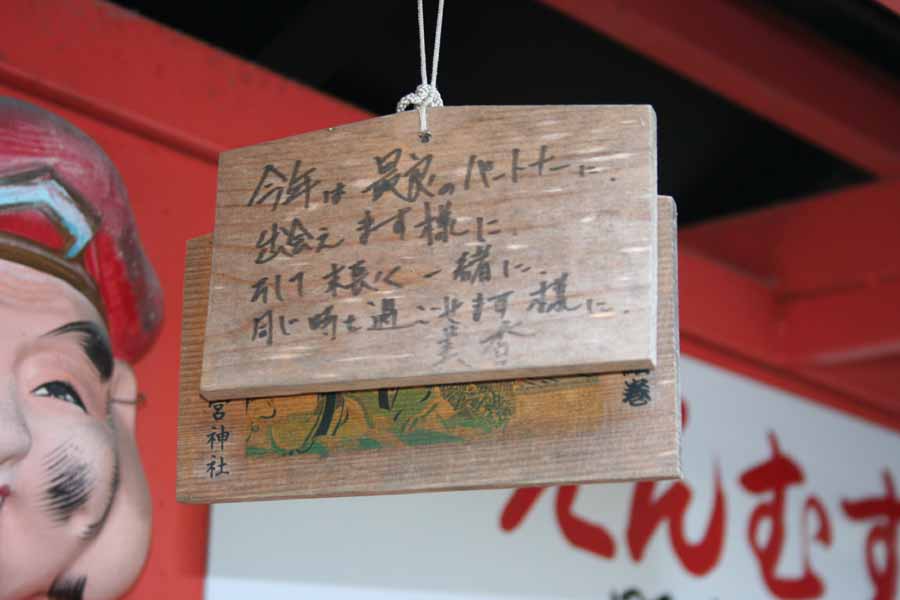 今年は 最良のパートナーに.
出会えます様に
そして 末長く 一緒に.
同じ時を過ごせます様に.
美香
宮神社
巻
えんむす